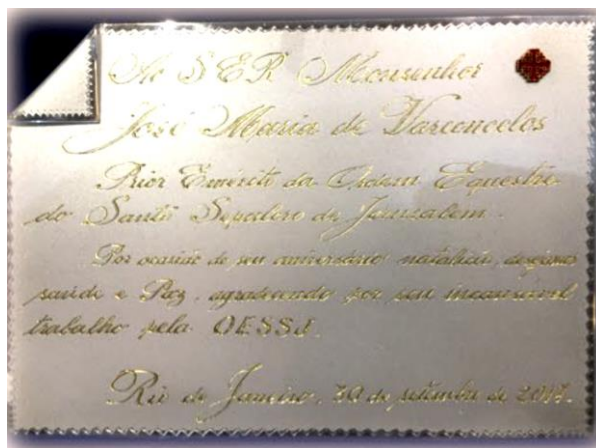 Ao S.E.R. Monsenhor
José Maria de Vasconcelos
Prior Emérito da Ordem Equestre
do Santo Sepulcro de Jerusalém.
Por ocasião de seu aniversário natalício, desejamos
saúde e Paz, agradecendo por seu incansável
trabalho pela OESSJ.
Rio de Janeiro, 30 de setembro de 2017.